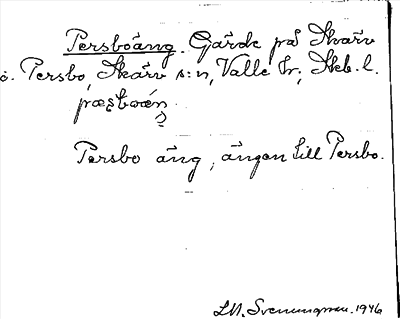 Persboäng. Gärde på Skarv
ö. Persbo, Skärv s:n, Valle hr; Skb. l.
Persbo äng, ängen till Persbo.
1946